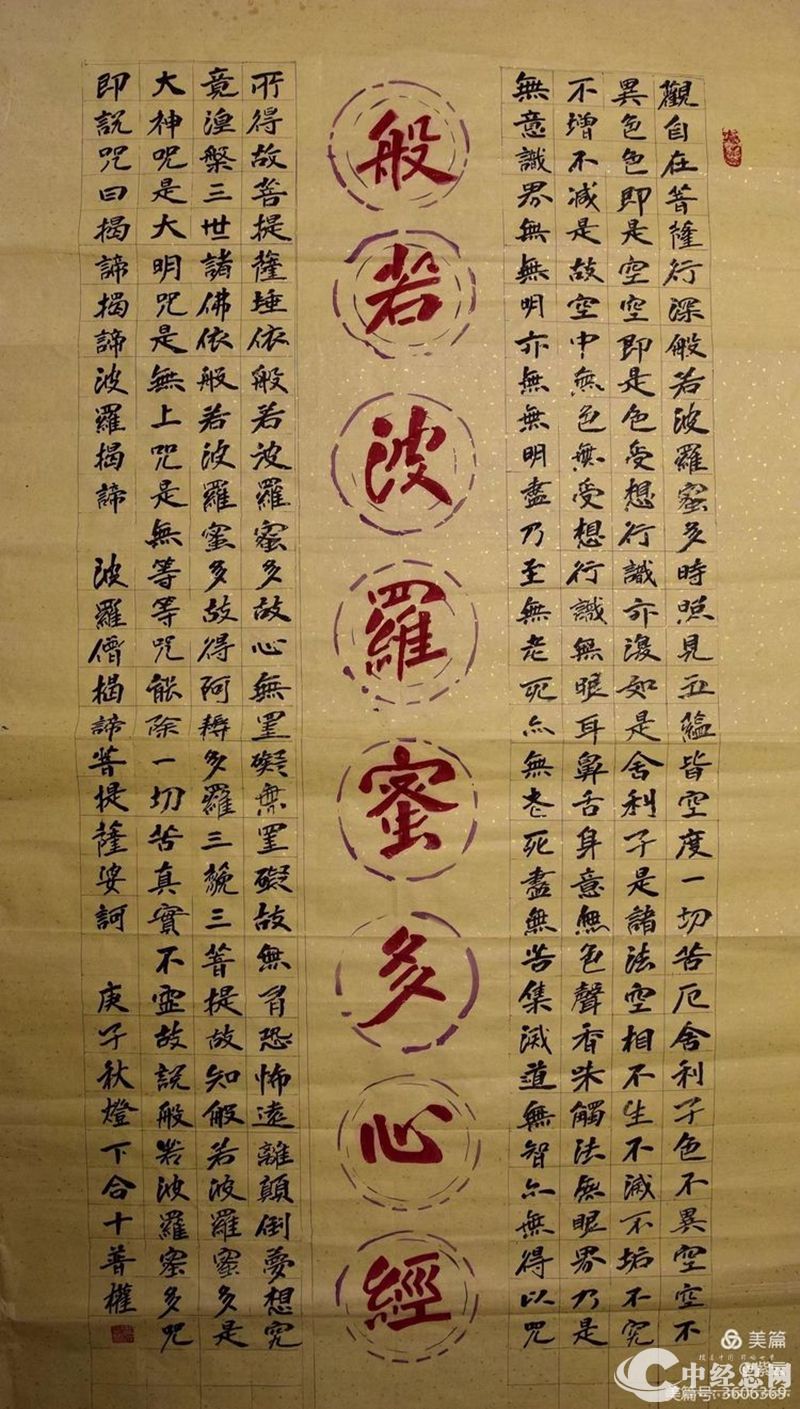 觀自在菩薩行深般若波羅蜜多時照見五蘊皆空度一切苦厄舍利子色不異空空不
異色色即是空空即是色受想行識亦復如是舍利子是諸法空相不生不滅不垢不究
不增不減是故空中無色無受想行識無眼耳鼻舌身意無色聲香味觸法無眼界乃是
無意識界無無明亦無無明盡乃至無老死亦無老死盡無苦集滅道無智亦無得以咒
般若波羅蜜多心經
所得故菩提薩埵依般若波羅蜜多故心無罣礙無罣礙故無有恐怖遠離顛倒夢想究
竟涅槃三世諸佛依般若波羅蜜多故得阿耨多羅三藐三菩提故知般若波羅蜜多是
大神咒是大明咒是無上咒是無等等咒能除一切苦真實不虛故說般若波羅蜜多咒
即說咒曰揭諦揭諦波羅揭諦 波羅僧揭諦菩提薩婆訶 庚子秋燈下合十普權
美篇
中经总网
美篇号:3606369